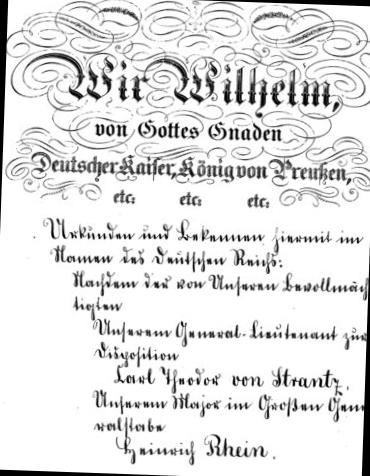 Wir Wilhelm,
von Gottes Gnaden
Deutscher Kaiser, König von Preußen,
etc: etc: etc:
Urkunden und Bekennen hiermit im
Namen des Deutschen Reichs:
Nachdem der von Unseren Bevollmäch
tigten
Unserem General-Lieutenant zur
Disposition
Carl Theodor von Strantz,
Unserem Major im Großen Gene
ralstabe
Heinrich Rhein.